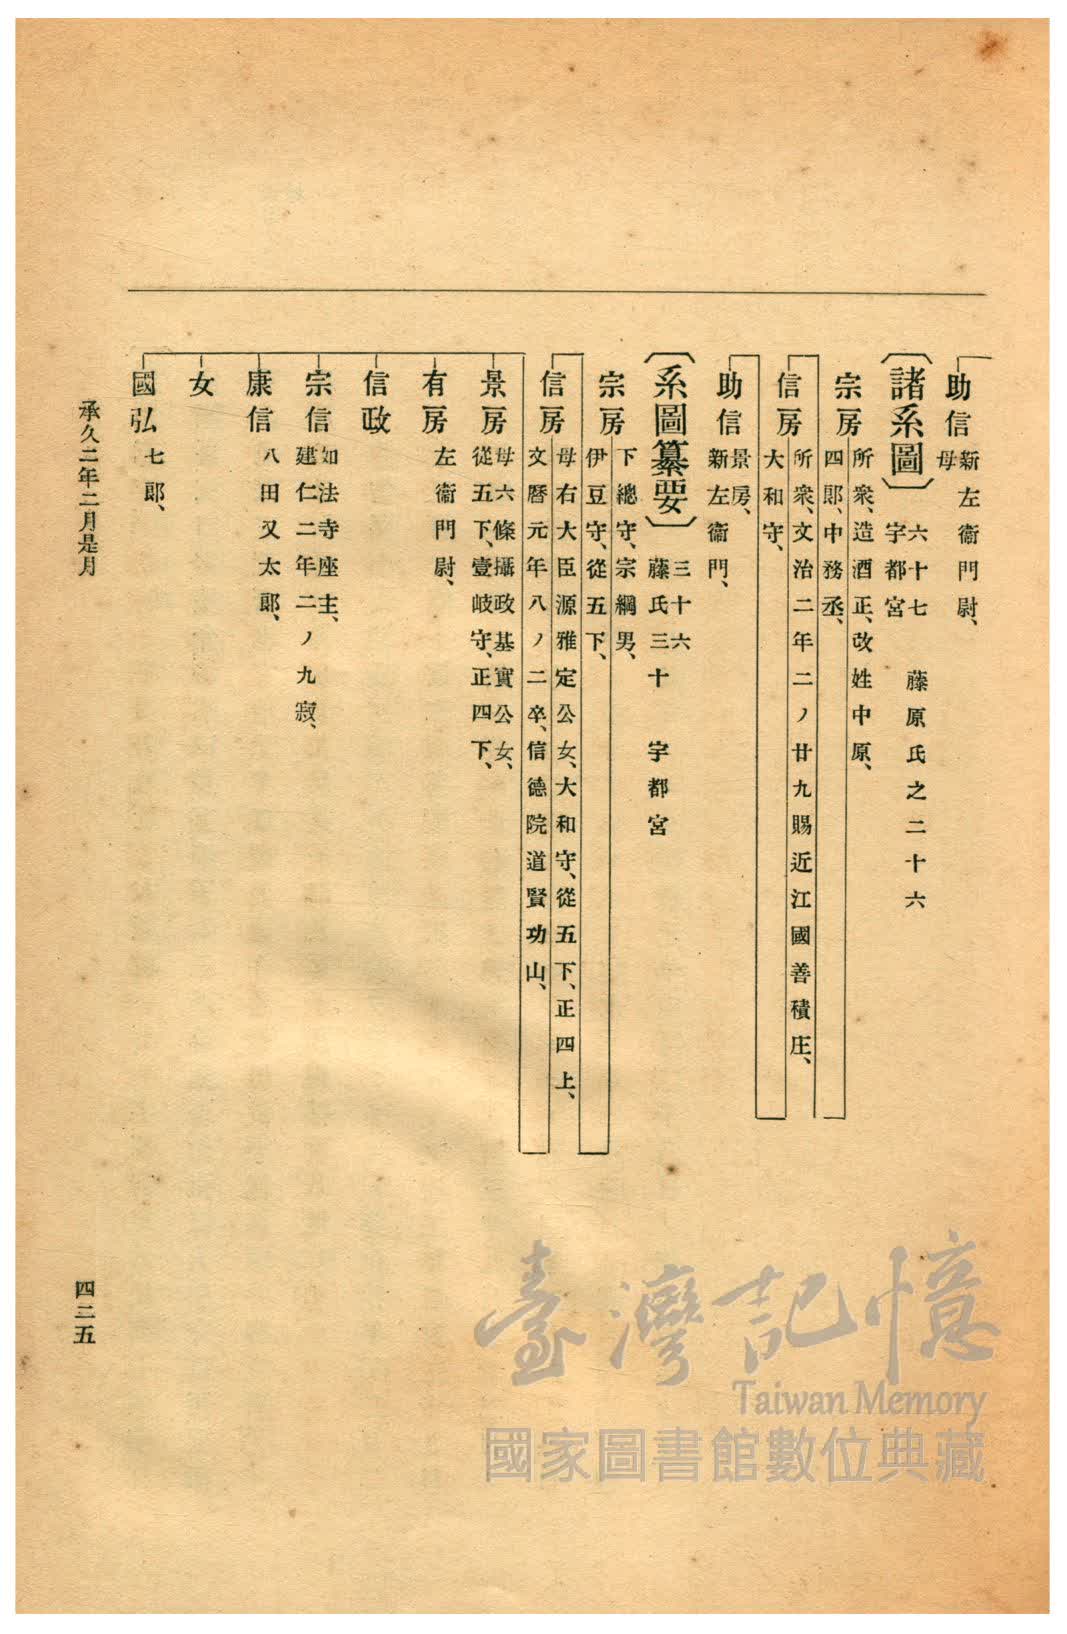 助信
新左衞門尉、
母
〔諸系圖〕
六十七 藤原氏之二十六
宇都宮
宗房
所衆、造酒正、改姓中原、
四郎、中務丞、
信房
所衆、文治二年二ノ廿九賜近江國善積庄、
大和守、
助信
景房、
新左衞門、
〔系圖纂要〕
三十六
藤氏三十 宇都宮
宗房
下總守、宗綱男、
伊豆守、從五下、
信房
母右大臣源雅定公女、大和守、從五下、正四上、
文曆元年八ノ二卒、信德院道賢功山、
景房
母六條攝政基實公女、
從五下、壹岐守、正四下、
有房
左衞門尉、
信政
宗信
如法寺座主、
建仁二年二ノ九寂、
康信
八田又太郎、
女
國弘
七郎、
承久二年二月是月
四二五
臺灣記憶
Taiwan Memory
國家圖書館數位典藏